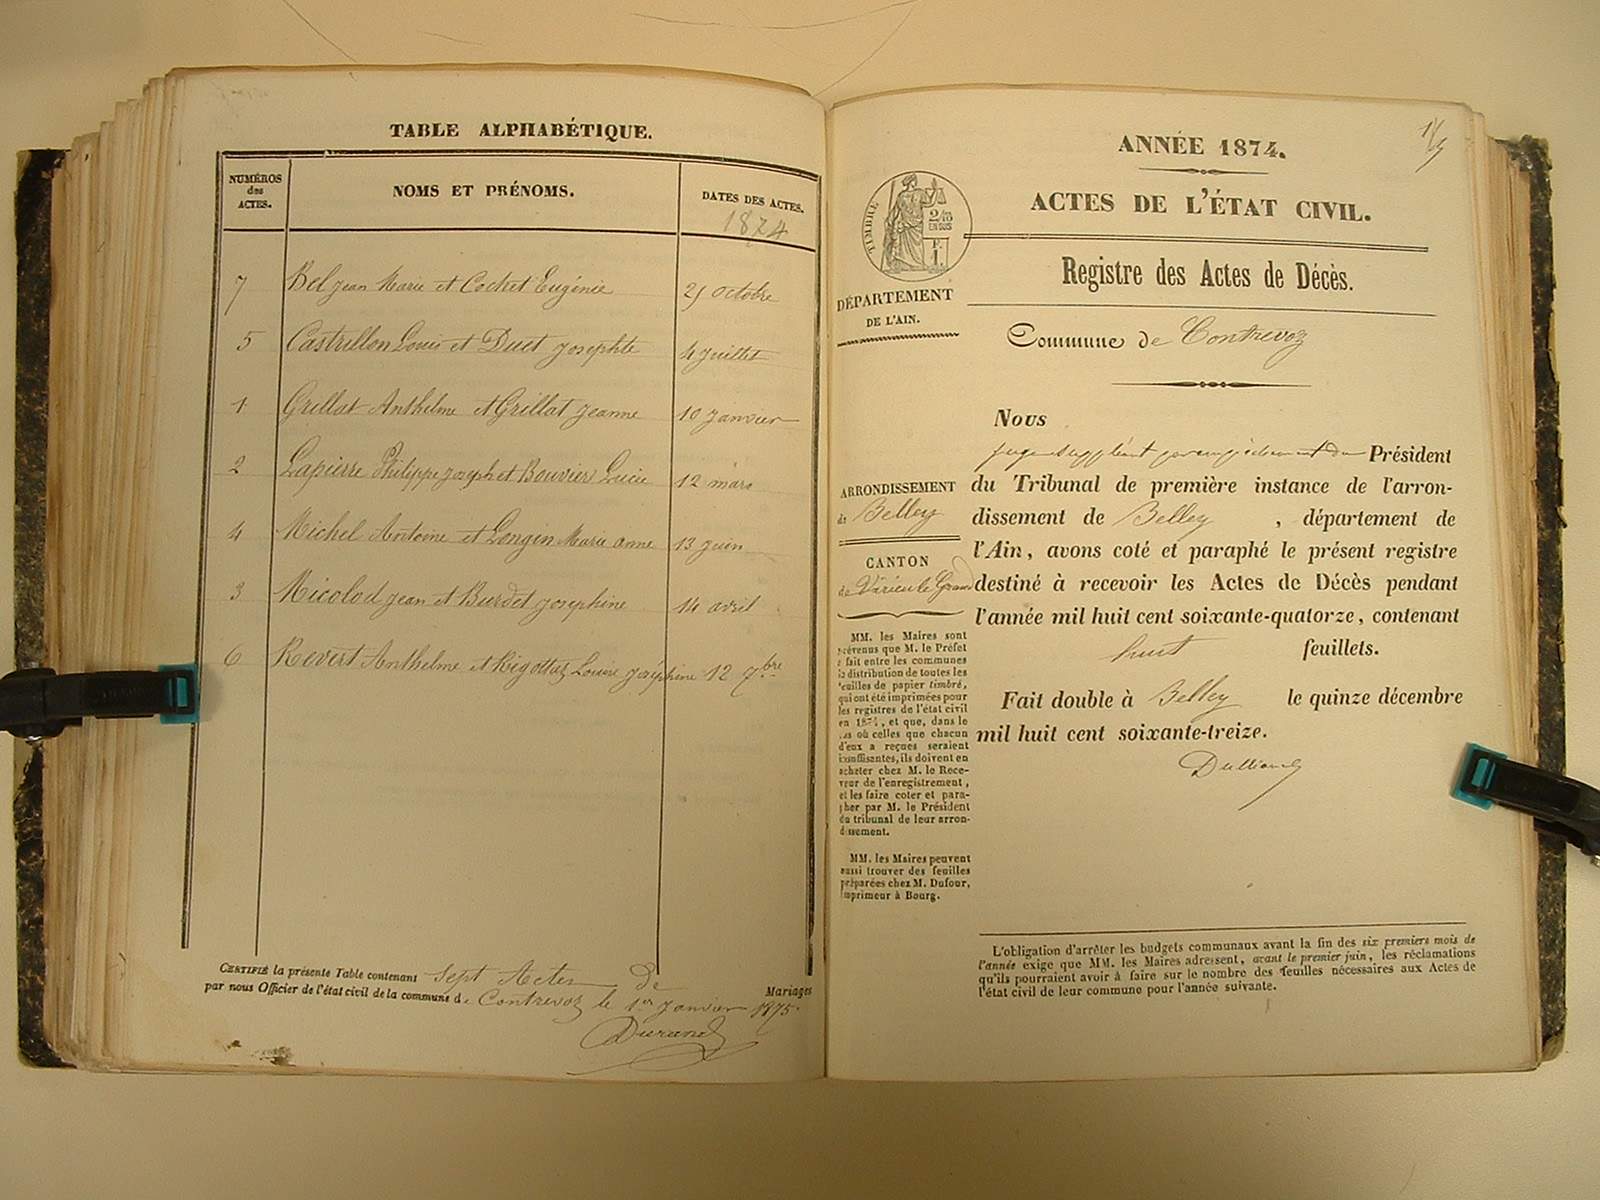 TABLE ALPHABÉTIQUE.
NUMÉROS
des
ACTES.
NOMS ET PRÉNOMS.
DATES DES ACTES.
1874
7 Bel Jean Marie et Cochet Eugénie 25 octobre
5 Castrillon Louis et Duet Josephte 4 juillet
1 Grillat Anthelme et Grillat Jeanne 10 janvier
2 Lapierre Philippe Joseph et Bouvier Lucie 12 mars
4 Michel Antoine et Longin Marie anne 13 juin
3 Nicolod Jean et Burdet Josephine 14 avril
6 Revert Anthelme et Rigottaz Louise Joséphine 12 7bre
CERTIFIÉ la présente Table contenant Sept Actes De Mariages
par nous Officier de l'état civil de la commune de Contrevoz le 1er Janvier 1875.
Durand
ANNÉE 1874.
ACTES DE L'ÉTAT CIVIL.
TIMBRE
2/10
EN SUS
F.
1.
Registre des Actes de Décès.
DÉPARTEMENT
DE L'AIN.
Commune de Contrevoz
ARRONDISSEMENT
de Belley
CANTON
de Virieu le Grand
MM. les Maires sont
prévenus que M. le Préfet
a fait entre les communes
la distribution de toutes les
feuilles de papier timbré,
qui ont été imprimées pour
les registres de l'état civil
en 1874, et que, dans le
cas où celles que chacun
d'eux a reçues seraient
insuffisantes, ils doivent en
acheter chez M. le Rece-
veur de l'enregistrement,
et les faire coter et para-
pher par M. le Président
du tribunal de leur arron-
dissement.
MM. les Maires peuvent
aussi trouver des feuilles
préparées chez M. Dufour,
imprimeur à Bourg.
Nous
juge suppléant par empêchement du Président
du Tribunal de première instance de l'arron-
dissement de Belley , département de
l'Ain, avons coté et paraphé le présent registre
destiné à recevoir les Actes de Décès pendant
l'année mil huit cent soixante-quatorze, contenant
huit feuillets.
Fait double à Belley le quinze décembre
mil huit cent soixante-treize.
L'obligation d'arrêter les budgets communaux avant la fin des six premiers mois de
l'année exige que MM. les Maires adressent, avant le premier juin, les réclamations
qu'ils pourraient avoir à faire sur le nombre des feuilles nécessaires aux Actes de
l'état civil de leur commune pour l'année suivante.